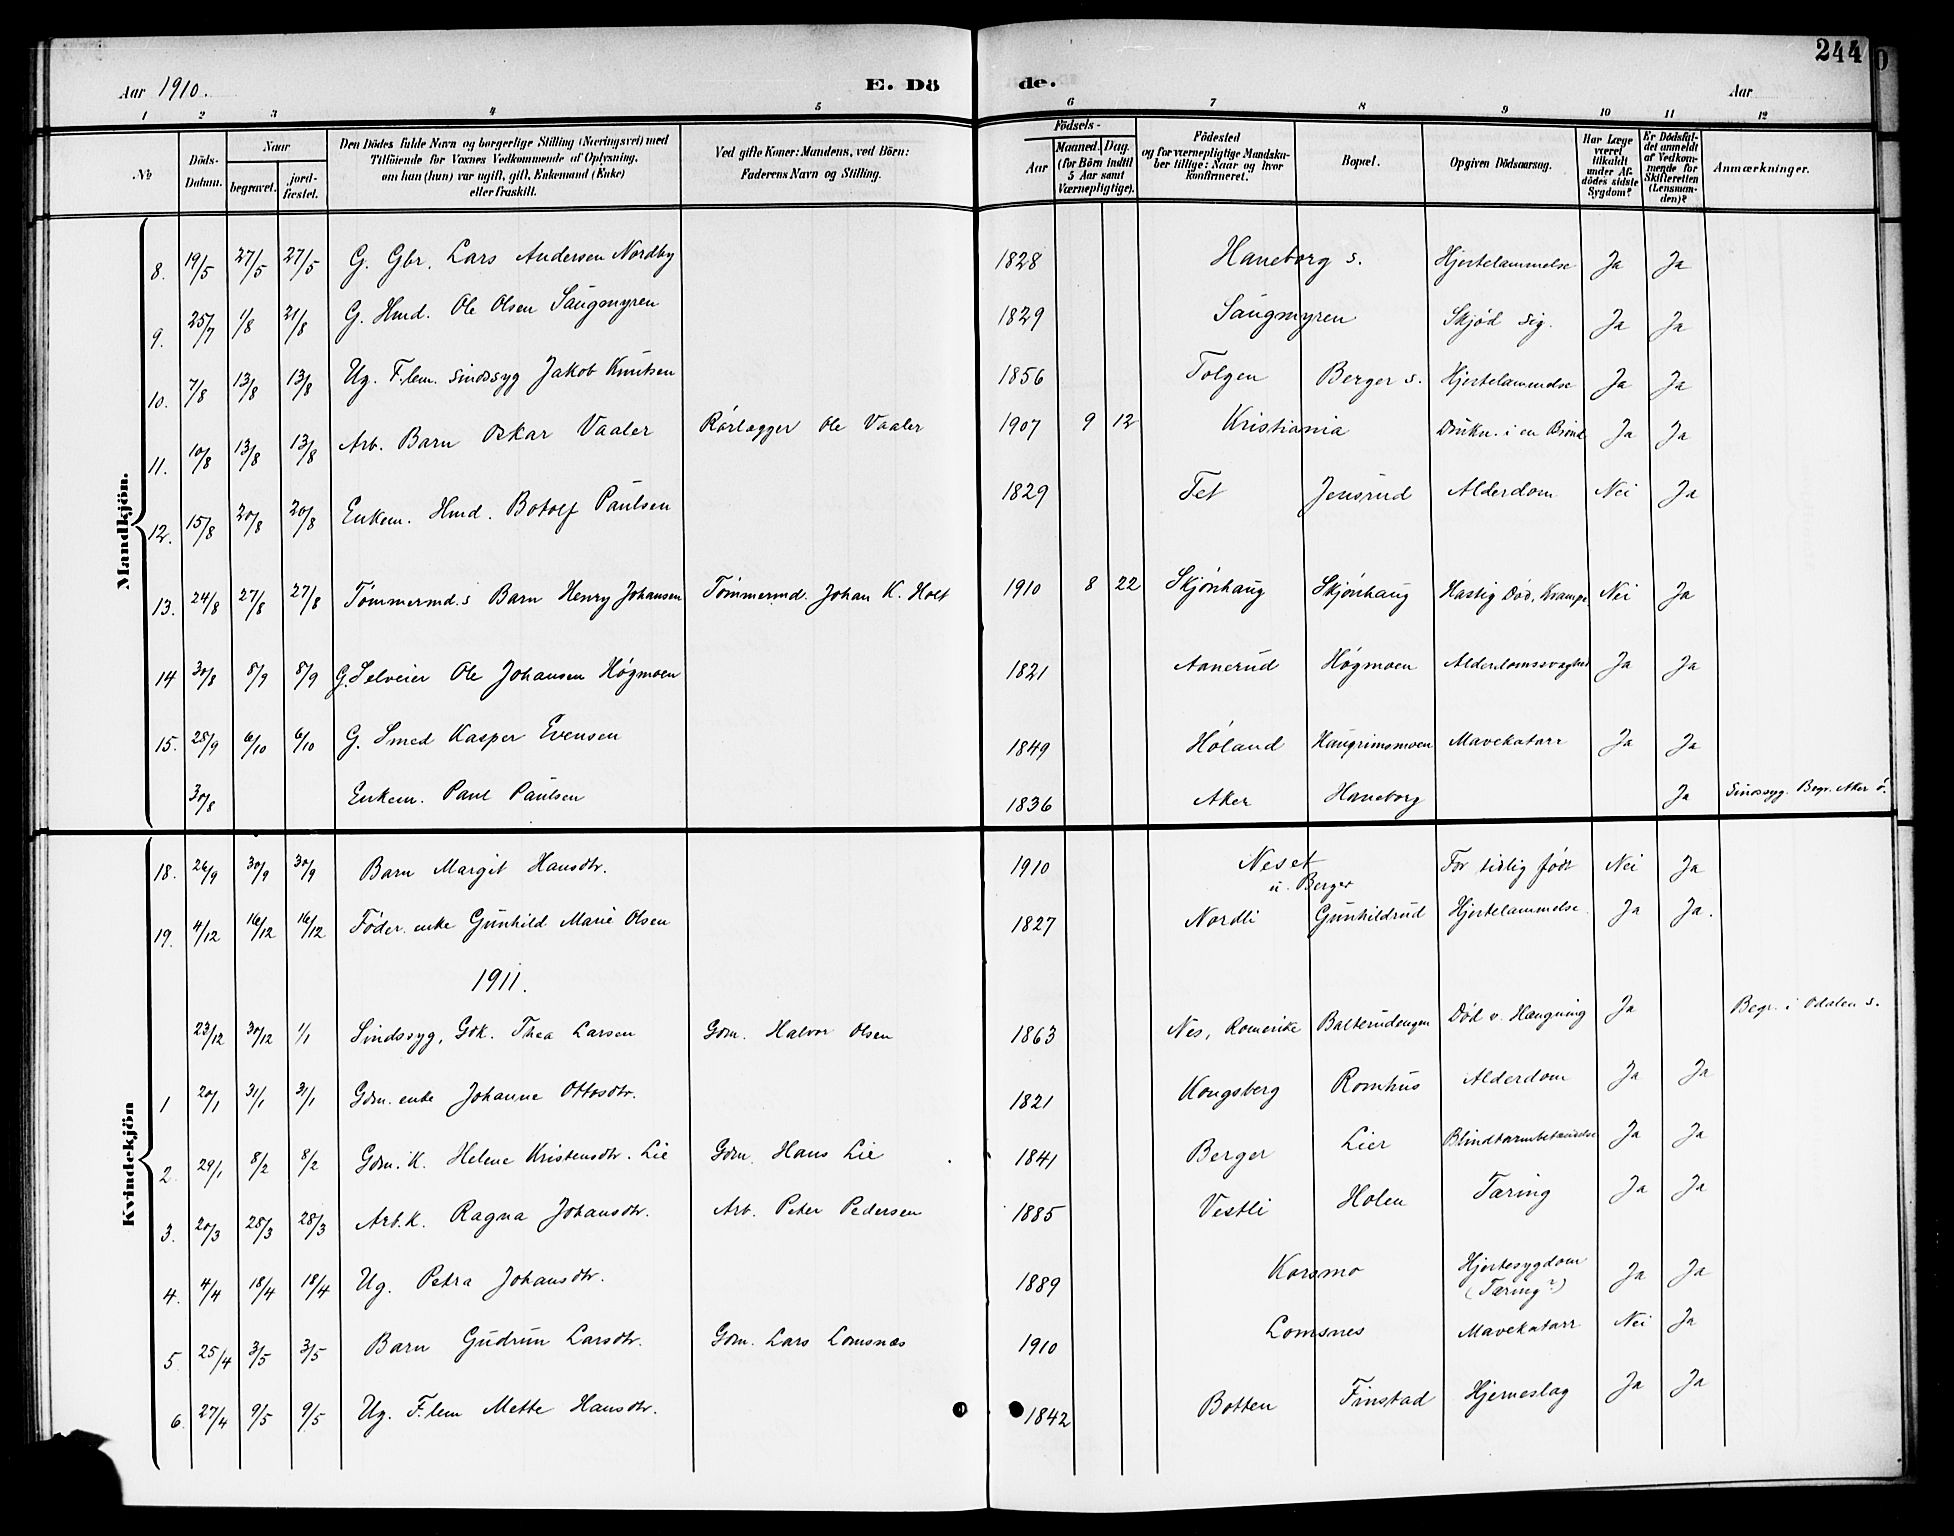 244
Aar 1910. E. Dö de. Aar
1 2 3 4 5 6 7 8 9 10 11 12
No
Döds-Datum.
Naar
begravet.
jord-fæstet.
Den Dödes fulde Navn og borgerlige Stilling (Næringsvei) med
Tilföiende for Voxnes Vedkommende af Oplysning,
om han (hun) var ugift, gift, Enkemand (Enke)
eller fraskilt.
Ved gifte Koner: Mandens, ved Börn:
Faderens Navn og Stilling.
Födsels-
Aar
Maaned. Dag.
(for Börn indtil
5 Aar samt
Værnepligtige).
Födested
og for værnepligtige Mandska-
ber tillige: Naar og hvor
konfirmeret.
Bopæl.
Opgiven Dödsaarsag.
Har Læge
været
tilkaldt
under Af-
dödes sidste
Sygdom?
Er Dödsfal-
det anmeldt
af Vedkom-
mende for
Skifteretten
(Lensman-
den)?
Anmærkninger.
Mandkjön.
8. 19/5 27/5 27/5 G. Gbr. Lars Andersen Nordby 1828 Haneborg s. Hjertelammelse Ja Ja
9. 25/7 1/8 21/8 G. Hmd. Ole Olsen Saugmyren 1829 Saugmyren Skjød sig. Ja Ja
10. 7/8 13/8 13/8 Ug. F.lem. sindssyg Jakob Knutsen 1856 Tolgen Berger s. Hjertelammelse Ja Ja
11. 10/8 13/8 13/8 Arb. Barn Oskar Vaaler Rørlægger Ole Vaaler 1907 9 12 Kristiania Drukn. i en Brønd Ja Ja
12. 15/8 20/8 20/8 Enkem. Hmd. Botolf Paulsen 1829 Fet Jensrud Alderdom Nei Ja
13. 24/8 27/8 27/8 Tømmermd.s Barn Henry Johansen Tømmermd. Johan K. Holt 1910 8 22 Skjønhaug Skjønhaug Hastig Død. Krampe. Nei Ja
14 30/8 8/9 8/9 G. Selveier Ole Johansen Høgmoen 1821 Aanerud Høgmoen Alderdomssvaghed Ja Ja
15. 28/9 6/10 6/10 G. Smed Kasper Evensen 1849 Høland Haugrimsmoen Mavekatarr Ja Ja
30/8 Enkem. Paul Paulsen 1836 Aker Haneborg Ja Sindssyg. Begr. Aker
Kvindekjön
18. 26/9 30/9 30/9 Barn Margit Hansdtr. 1910 Neset u. Berger For tidlig født Nei Ja
19. 4/12 16/12 16/12 Føder. enke Gunhild Marie Olsen 1827 Nordli Gunhildrud Hjertelammelse. Ja Ja.
1911.
23/12 30/12 1/1 Sindssyg, Gdk. Thea Larsen Gdm. Halvor Olsen 1863 Nes, Romerike Balterudengen Død v. Hængning Ja Begr. i Odalen s.
1 20/1 31/1 31/1 Gdm. enke Johanne Ottosdtr. 1821 Kongsberg Romhus Alderdom Ja Ja
2. 29/1 8/2 8/2 Gdm. K. Helene Kristensdtr. Lie Gdm. Hans Lie 1841 Berger Lier Blindtarmbetændelse Ja Ja
3. 20/3 28/3 28/3 Arb. K. Ragna Johansdtr. Arb. Peter Pedersen 1885 Vestli Holen Tæring Ja Ja
4. 4/4 18/4 18/4 Ug. Petra Johansdtr. 1889 Korsmo Hjertesygdom (Tæring?) Ja Ja
5. 25/4 3/5 3/5 Barn Gudrun Larsdtr. Gdm. Lars Lomsnæs 1910 Lomsnes Mavekatarr Nei Ja
6. 27/4 9/5 9/5 Ug. F.lem Mette Hansdtr. 1842 Botten Finstad Hjerneslag Ja Ja